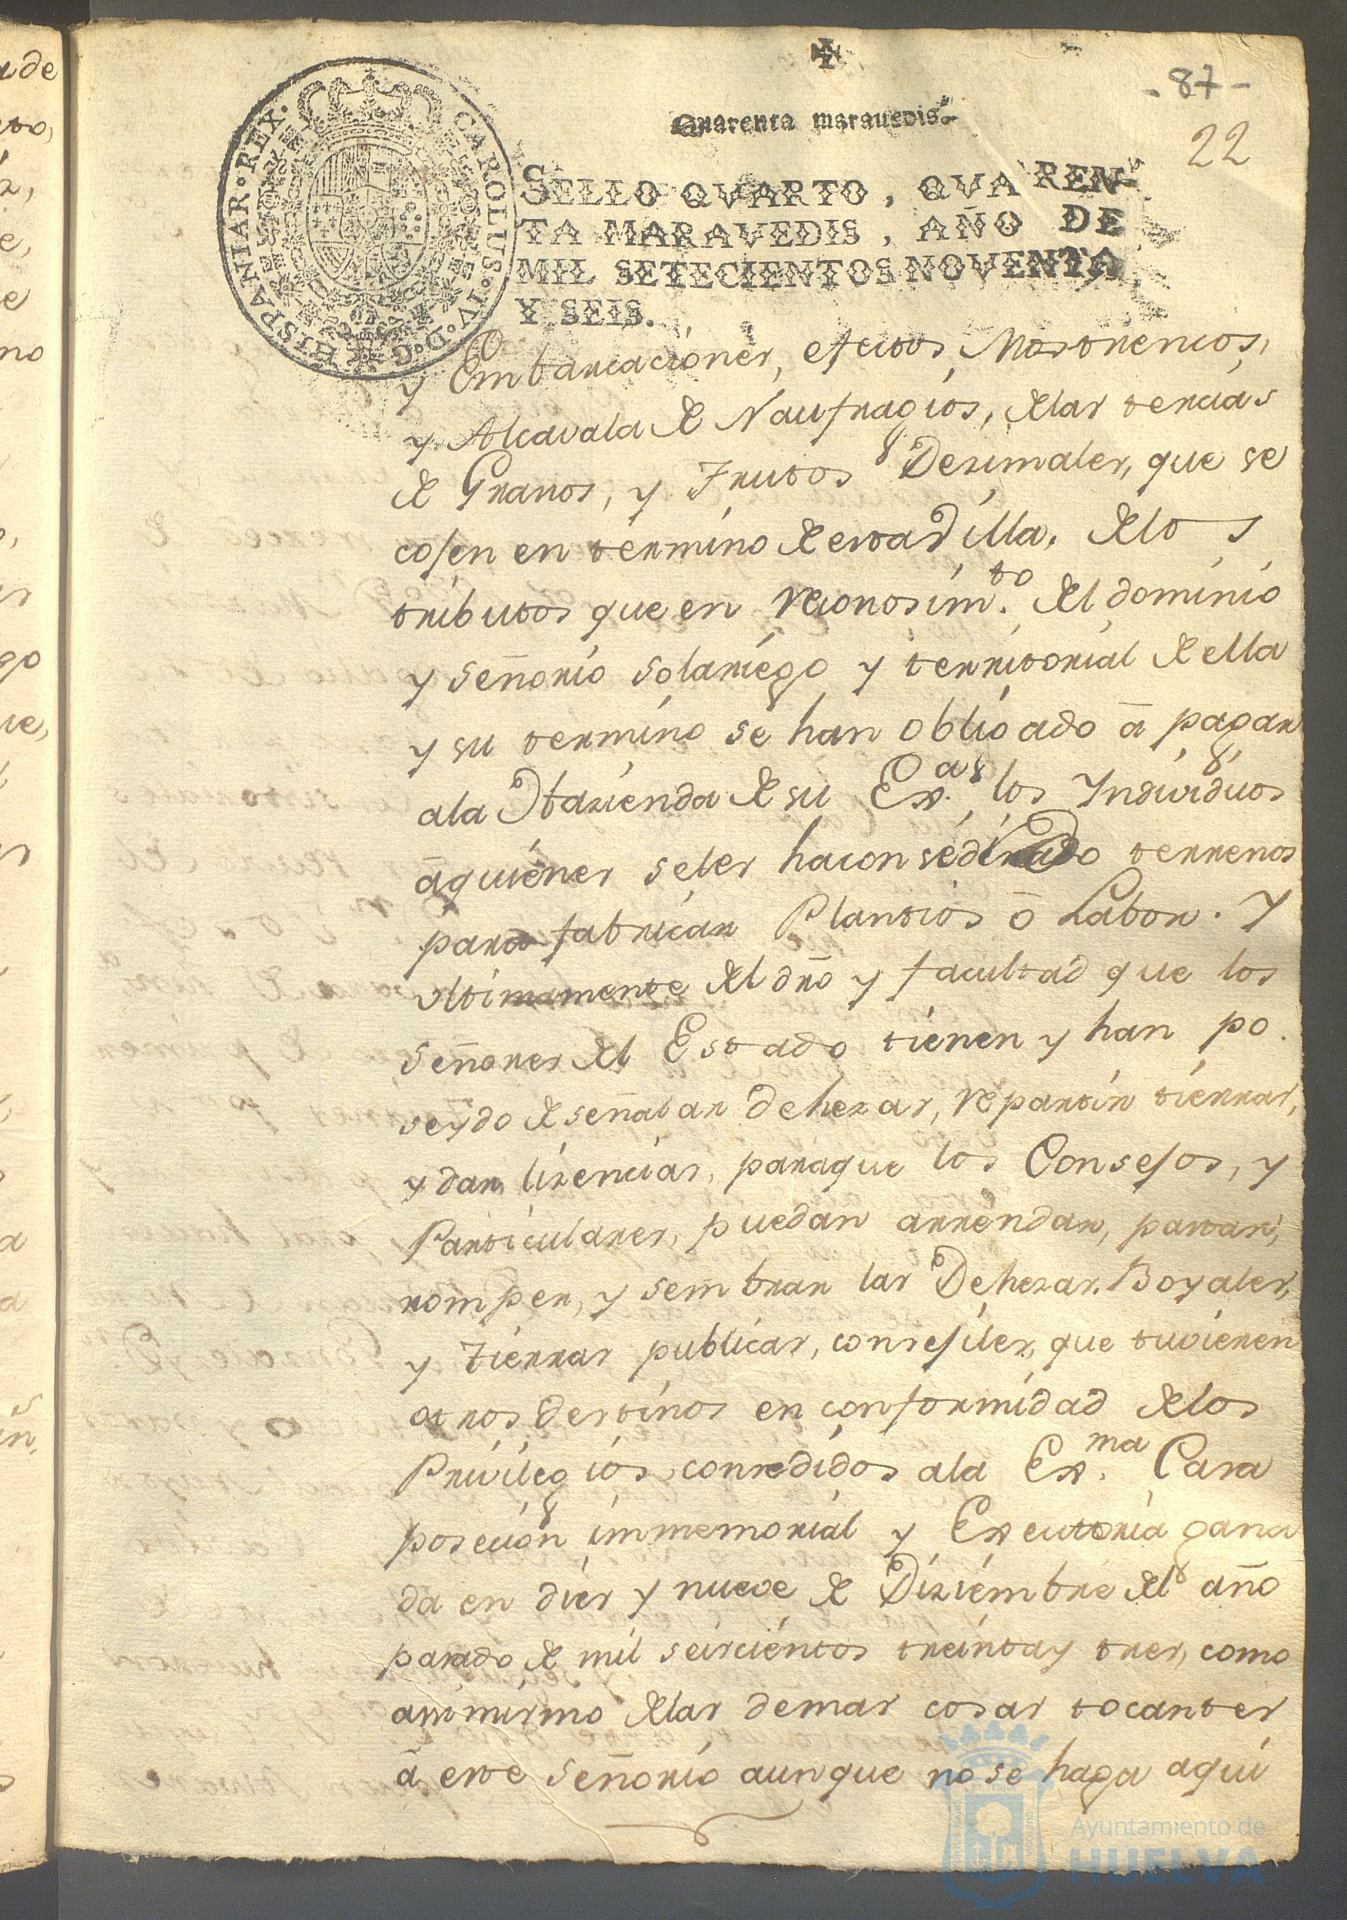 - 87 -
22
Quarenta marauedis.
SELLO QVARTO, QVAREN-
TA MARAVEDIS, AÑO DE
MIL SETECIENTOS NOVENTA
Y SEIS.
CAROLUS · IV · D · G · HISPANIAR · REX ·
y Embarcaciones, efectos, Mostrencos,
y Alcavala de Naufragios, delas tercias
de Granos, y Frutos Dezimales, que se
cojen en termino de esta Villa, delos
tributos que en reconosim.to del dominio
y señorio solariego y territorial de ella
y su termino se han obligado â pagar
ala Hazienda de su Ex.a los Yndividuos
âquienes seles ha consedido terrenos
para fabricar Plantios ô Labor. Y
ultimamente del dro y facultad que los
señores del Estado tienen y han po
seydo de señalar dehezas, repartir tierras,
y dar lizencias, paraque los Consejos, y
Particulares, puedan arrendar, pastar,
romper, y sembrar las Dehezas Boyales,
y tierras publicas, consejiles, que tuvieren
otros destinos en conformidad delos
Privilegios consedidos ala Ex.ma Casa
posecion immemorial y Executoria gana
da en dies y nueve de Diziembre del año
pasado de mil seiscientos treinta y tres, como
assimismo delas demas cosas tocantes
â este señorio aunque no se haga aqui
Ayuntamiento de
HUELVA